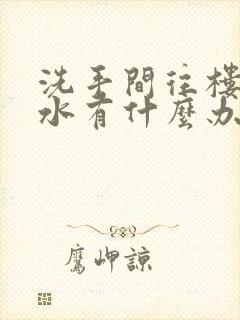 洗手間往樓
水有什麼办
鷹岬諒